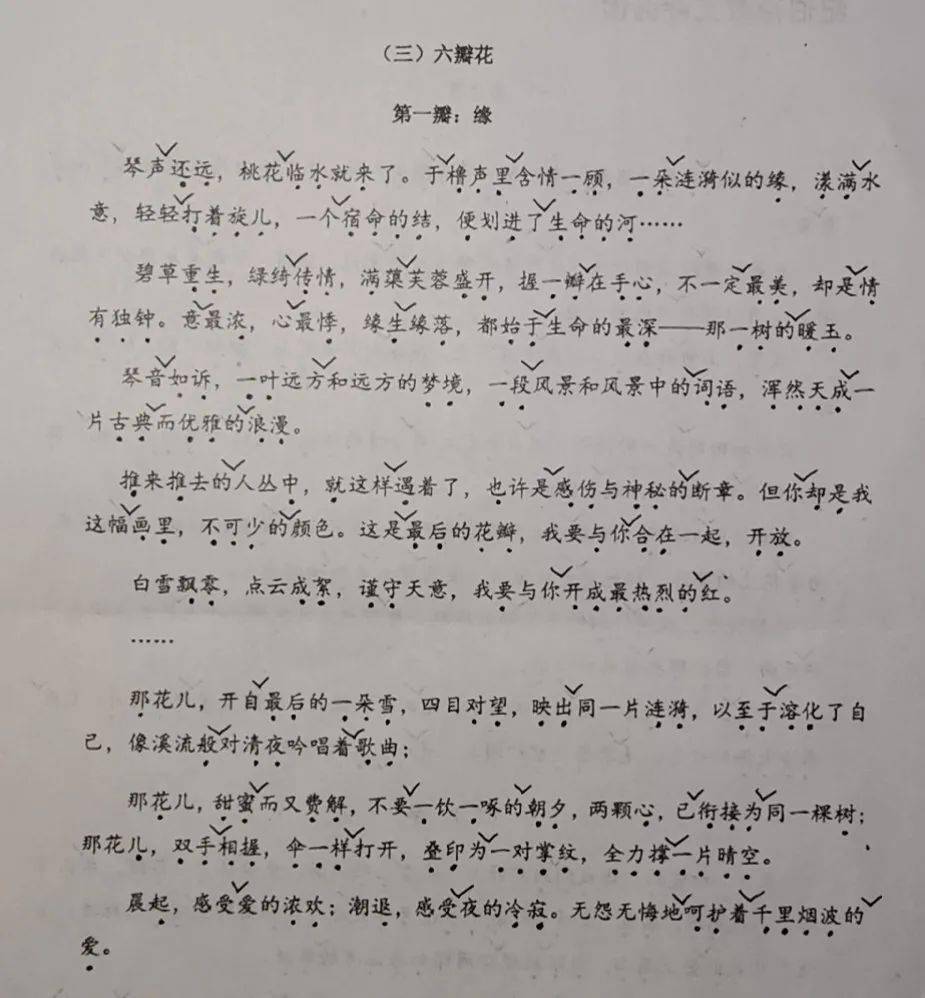 （三）六瓣花
第一瓣：缘
琴声还远，桃花临水就来了。于橹声里含情一顾，一朵涟漪似的缘，漾满水
意，轻轻打着旋儿，一个宿命的结，便划进了生命的河……
碧草重生，绿绮传情，满蕖芙蓉盛开，握一瓣在手心，不一定最美，却是情
有独钟。意最浓，心最悸，缘生缘落，都始于生命的最深——那一树的暖玉。
琴音如诉，一叶远方和远方的梦境，一段风景和风景中的词语，浑然天成一
片古典而优雅的浪漫。
推来推去的人丛中，就这样遇着了，也许是感伤与神秘的断章。但你却是我
这幅画里，不可少的颜色。这是最后的花瓣，我要与你合在一起，开放。
白雪飘零，点云成絮，谨守天意，我要与你开成最热烈的红。
……
那花儿，开自最后的一朵雪，四目对望，映出同一片涟漪，以至于溶化了自
己，像溪流般对清夜吟唱着歌曲；
那花儿，甜蜜而又费解，不要一饮一啄的朝夕，两颗心，已衔接为同一棵树；
那花儿，双手相握，伞一样打开，叠印为一对掌纹，全力撑一片晴空。
晨起，感受爱的浓欢；潮退，感受夜的冷寂。无怨无悔地呵护着千里烟波的
爱。